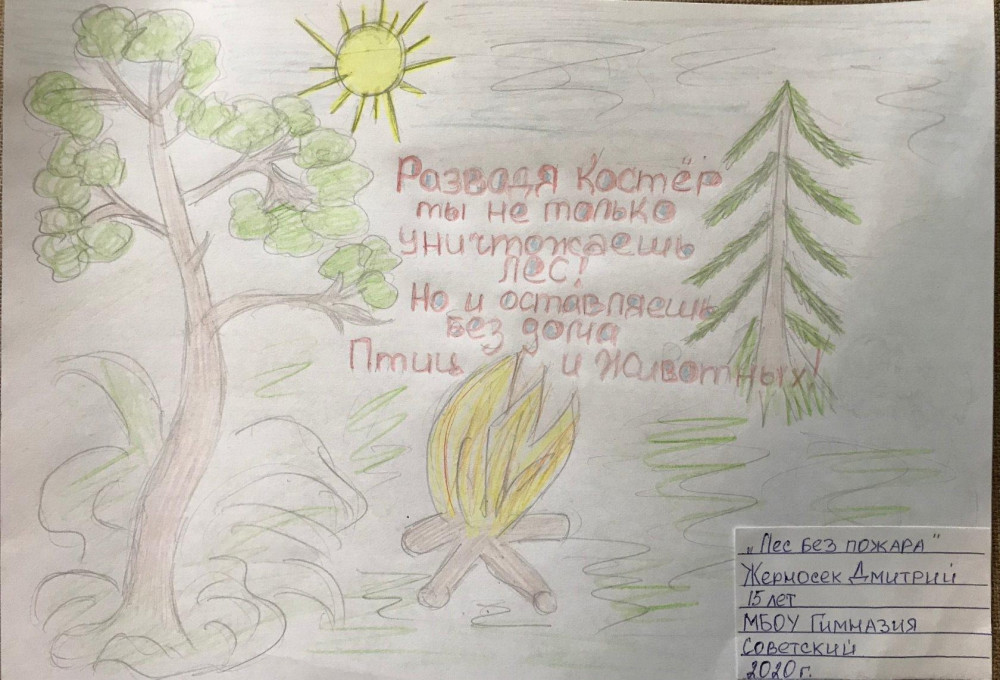 Разводя костёр
ты не только
уничтожаешь
лес!
Но и оставляешь
без дома
Птиц и животных!
„Лес без пожара"
Жерносек Дмитрий
15 лет
МБОУ Гимназия
Советский
2020г.